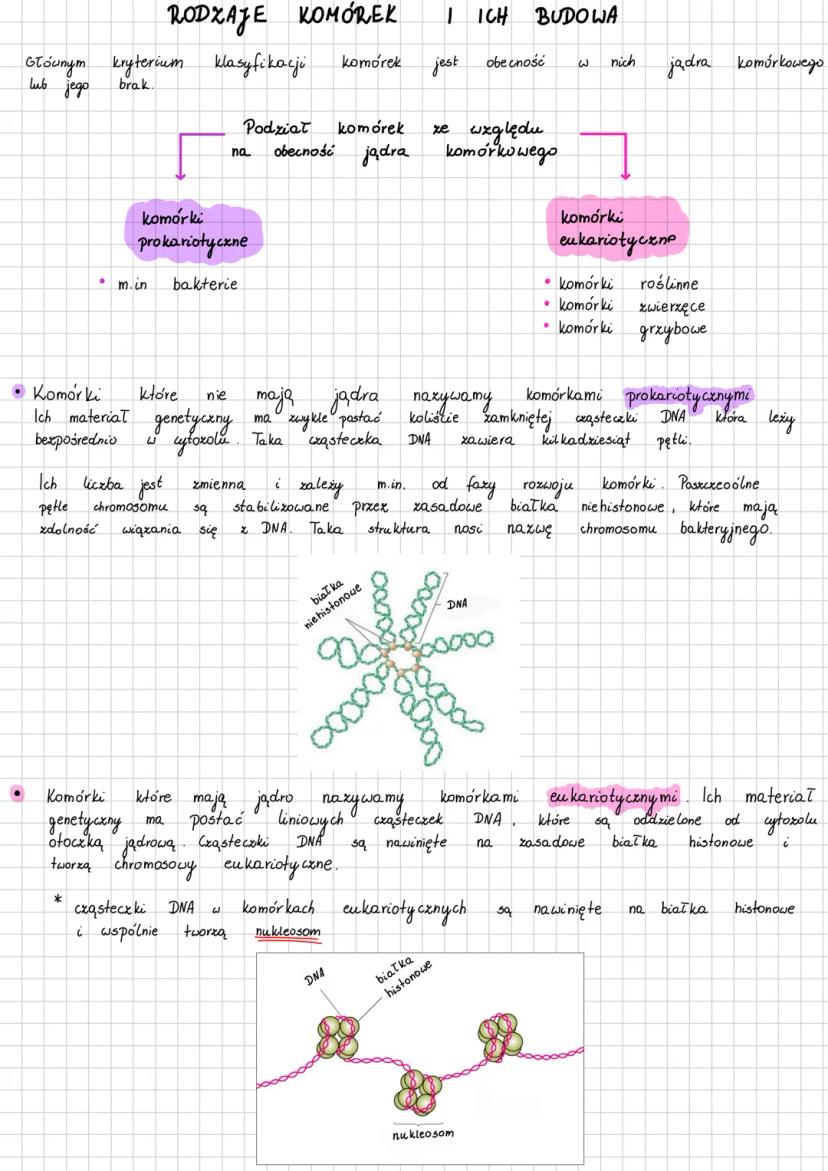 RODZAJE KOMÓREK I ICH BUDOWA
Głównym kryterium klasyfikacji komórek jest obecność w nich jądra komórkowego
lub jego brak.
Podział komórek ze względu
na obecność jądra komórkowego
komórki
prokariotyczne
• m.in bakterie
komórki
eukariotyczne
• komórki roślinne
• komórki zwierzęce
• komórki grzybowe
• Komórki które nie mają jądra nazywamy komórkami prokariotycznymi
Ich materiał genetyczny ma zwykle postać koliście zamkniętej cząsteczki DNA która leży
bezpośrednio w cytozolu. Taka cząsteczka DNA zawiera kilkadziesiąt pętli.
Ich liczba jest zmienna i zależy m.in. od fazy rozwoju komórki. Poszczeoólne
pętle chromosomu są stabilizowane przez zasadowe białka niehistonowe, które mają
zdolność wiązania się z DNA. Taka struktura nosi nazwę chromosomu bakteryjnego.
białka
niehistonowe
DNA
• Komórki które mają jądro nazywamy komórkami eukariotycznymi. Ich materiał
genetyczny ma postać liniowych cząsteczek DNA, które są oddzielone od cytozolu
otoczką jądrową. Cząsteczki DNA są nawinięte na zasadowe białka histonowe i
tworzą chromosowy eukariotyczne.
* cząsteczki DNA w komórkach eukariotycznych są nawinięte na białka histonowe
i wspólnie tworzą nukleosom
DNA
białka
histonowe
nukleosom